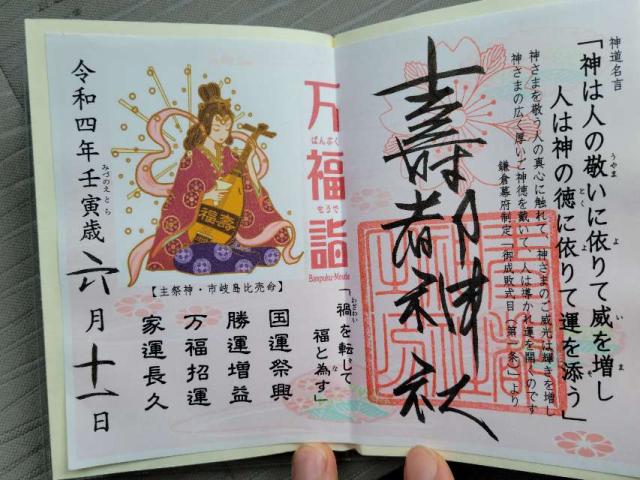 神道名言
「神は人の敬いに依りて威を増し
人は神の徳に依りて運を添う」
うやま
よ
い
ま
とく
よ
神さまを敬う人の真心に触れて、神さまのご威光は輝きを増し
神さまの広く厚いご神徳を戴いて、人は導かれ運を開くのです
鎌倉幕府制定「御成敗式目（第一条）」より
壽都神社
万福詣
ばんぷく
もうで
Banpuku-Moude
福壽
【主祭神・市岐島比売命】
「禍を転じて
わざわい
福と為す」
な
国運祭興
勝運増益
万福招運
家運長久
令和四年壬寅歳六月十一日
みづのえとら